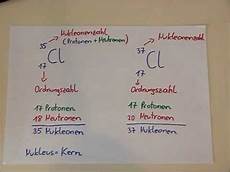 Nukleonenzahl
(Protonen + Neutronen)
35
Cl
17
Ordnungszahl
17 Protonen
18 Neutronen
35 Nukleonen
Nukleus = Kern
Nukleonenzahl
37
Cl
17
Ordnungszahl
17 Protonen
20 Neutronen
37 Nukleonen